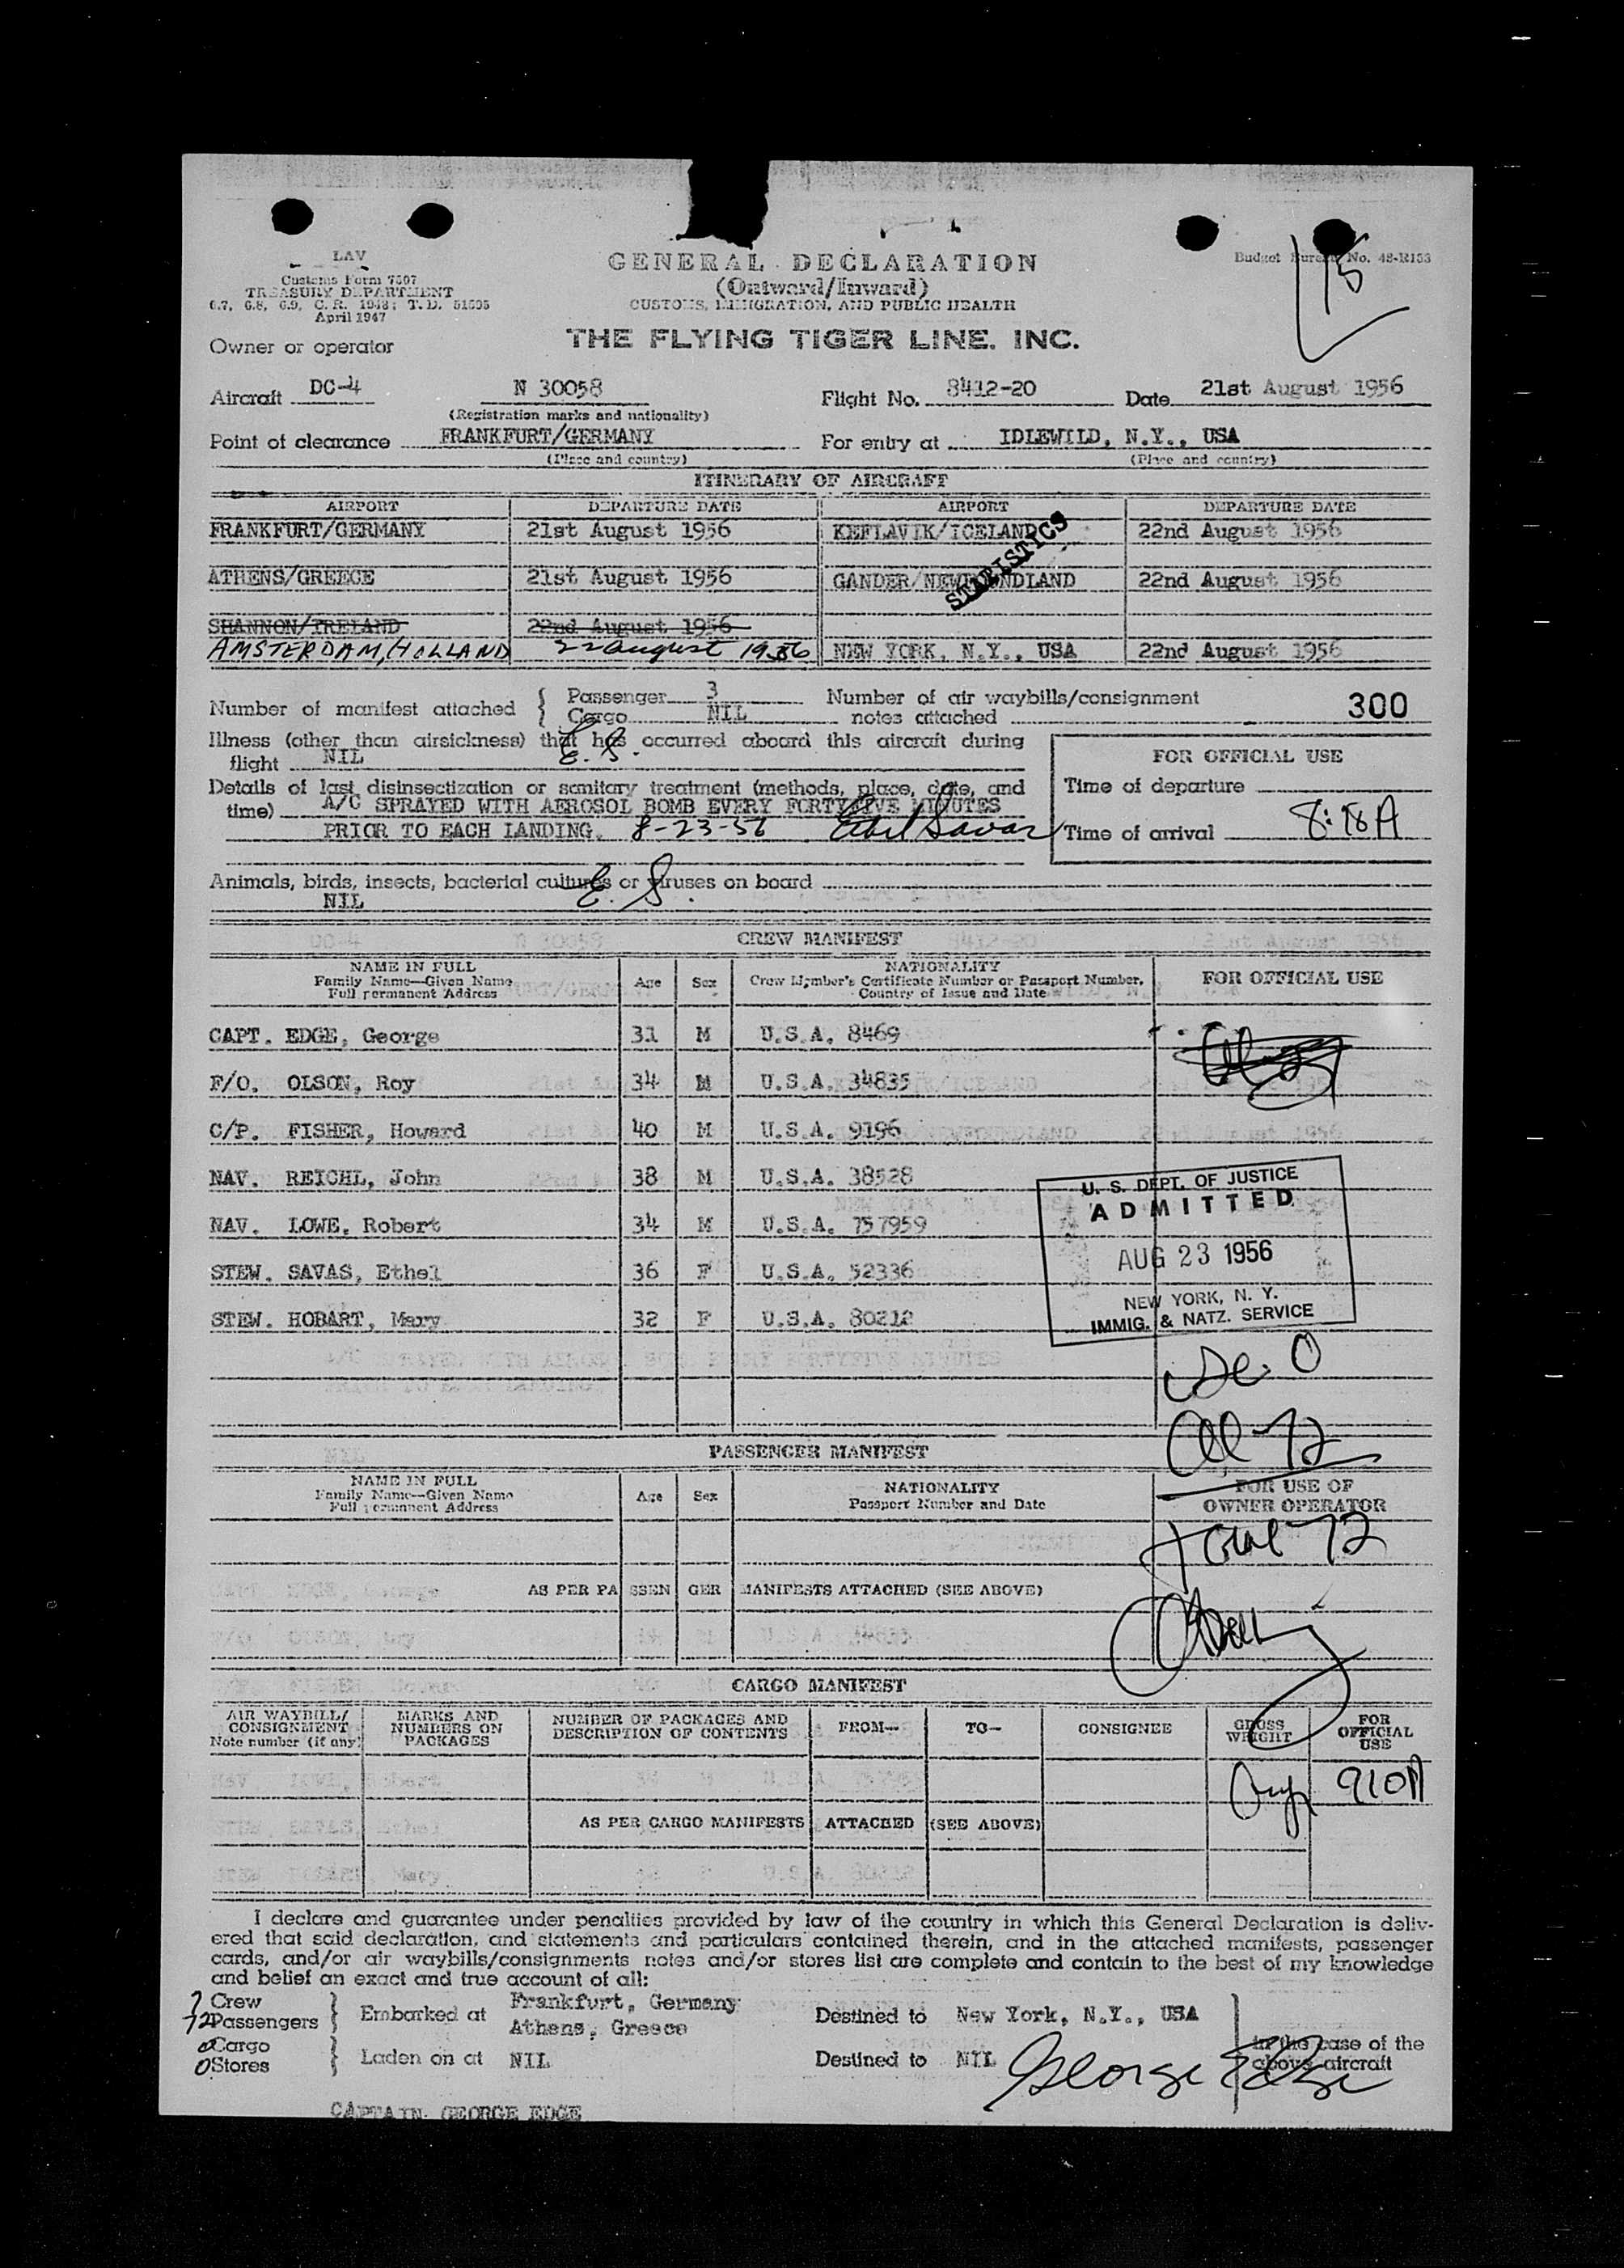 LAV
Customs Form 7507
TREASURY DEPARTMENT
6.7, 6.8, 6.9, C. R. 1948; T. D. 51595
April 1947
GENERAL DECLARATION
(Outward/Inward)
CUSTOMS, IMMIGRATION, AND PUBLIC HEALTH
Budget Bureau No. 48-R153
15
Owner or operator THE FLYING TIGER LINE, INC.
Aircraft DC-4 N 30058 Flight No. 8412-20 Date 21st August 1956
(Registration marks and nationality)
Point of clearance FRANKFURT/GERMANY For entry at IDLEWILD, N.Y., USA
(Place and country) (Place and country)
ITINERARY OF AIRCRAFT
AIRPORT DEPARTURE DATE AIRPORT DEPARTURE DATE
FRANKFURT/GERMANY 21st August 1956 KEFLAVIK/ICELAND 22nd August 1956
STATISTICS
ATHENS/GREECE 21st August 1956 GANDER/NEWFOUNDLAND 22nd August 1956
SHANNON/IRELAND 22nd August 1956
AMSTERDAM, HOLLAND 22 August 1956 NEW YORK, N.Y., USA 22nd August 1956
Number of manifest attached Passenger 3 Number of air waybills/consignment
Cargo NIL notes attached 300
Illness (other than airsickness) that has occurred aboard this aircraft during
flight NIL E. S.
FOR OFFICIAL USE
Details of last disinsectization or sanitary treatment (methods, place, date, and
time) A/C SPRAYED WITH AEROSOL BOMB EVERY FORTYFIVE MINUTES
PRIOR TO EACH LANDING. 8-23-56 Ethel Savas
Time of departure
Time of arrival 8:18A
Animals, birds, insects, bacterial cultures or viruses on board
NIL E. S.
CREW MANIFEST
NAME IN FULL
Family Name—Given Name
Full permanent Address
Age Sex
NATIONALITY
Crew Member's Certificate Number or Passport Number,
Country of Issue and Date
FOR OFFICIAL USE
CAPT. EDGE, George 31 M U.S.A. 8469
F/O. OLSON, Roy 34 M U.S.A. 34835
C/P. FISHER, Howard 40 M U.S.A. 9196
NAV. REICHL, John 38 M U.S.A. 38528
NAV. LOWE, Robert 34 M U.S.A. 757959
STEW. SAVAS, Ethel 36 F U.S.A. 52336
STEW. HOBART, Mary 32 F U.S.A. 80212
U. S. DEPT. OF JUSTICE
ADMITTED
AUG 23 1956
NEW YORK, N. Y.
IMMIG. & NATZ. SERVICE
PASSENGER MANIFEST
NAME IN FULL
Family Name—Given Name
Full permanent Address
Age Sex
NATIONALITY
Passport Number and Date
FOR USE OF
OWNER OPERATOR
72
AS PER PASSENGER MANIFESTS ATTACHED (SEE ABOVE)
CARGO MANIFEST
AIR WAYBILL/
CONSIGNMENT
Note number (if any)
MARKS AND
NUMBERS ON
PACKAGES
NUMBER OF PACKAGES AND
DESCRIPTION OF CONTENTS
FROM— TO— CONSIGNEE
GROSS
WEIGHT
FOR
OFFICIAL
USE
910A
AS PER CARGO MANIFESTS ATTACHED (SEE ABOVE)
I declare and guarantee under penalties provided by law of the country in which this General Declaration is deliv-
ered that said declaration, and statements and particulars contained therein, and in the attached manifests, passenger
cards, and/or air waybills/consignments notes and/or stores list are complete and contain to the best of my knowledge
and belief an exact and true account of all:
7 Crew
72 Passengers
Embarked at Frankfurt, Germany
Athens, Greece
Destined to New York, N.Y., USA
0 Cargo
0 Stores
Laden on at NIL Destined to NIL
in the case of the
above aircraft
George Edge
CAPTAIN GEORGE EDGE